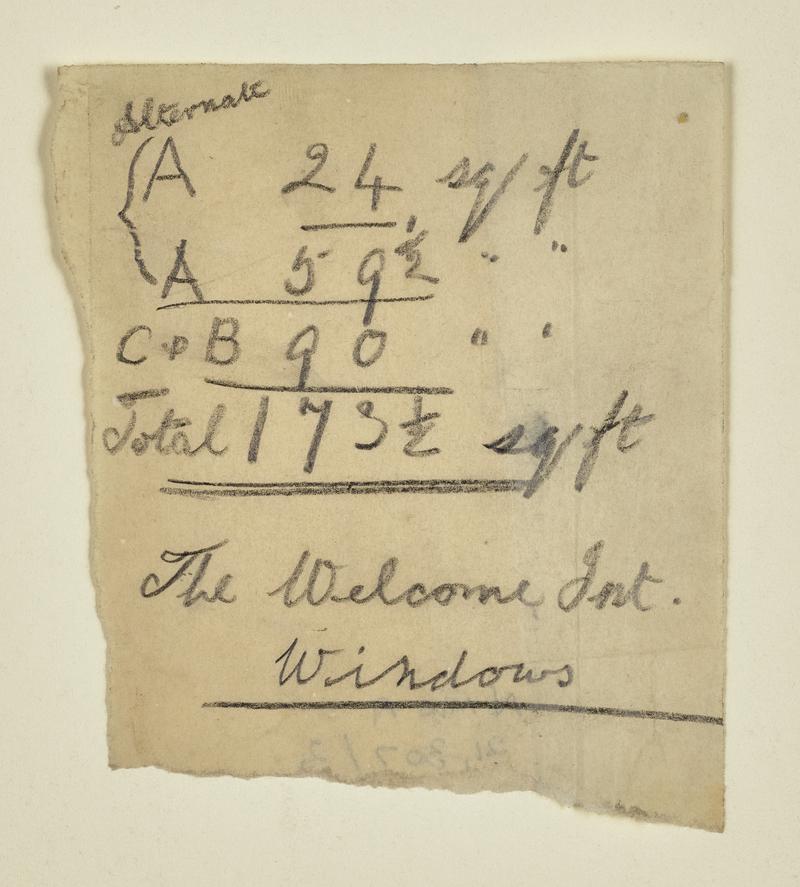 Alternate
A 24, sq/ft
A 59½ " "
C + B 90 " "
Total 173½ sq/ft
The Welcome Int.
Windows